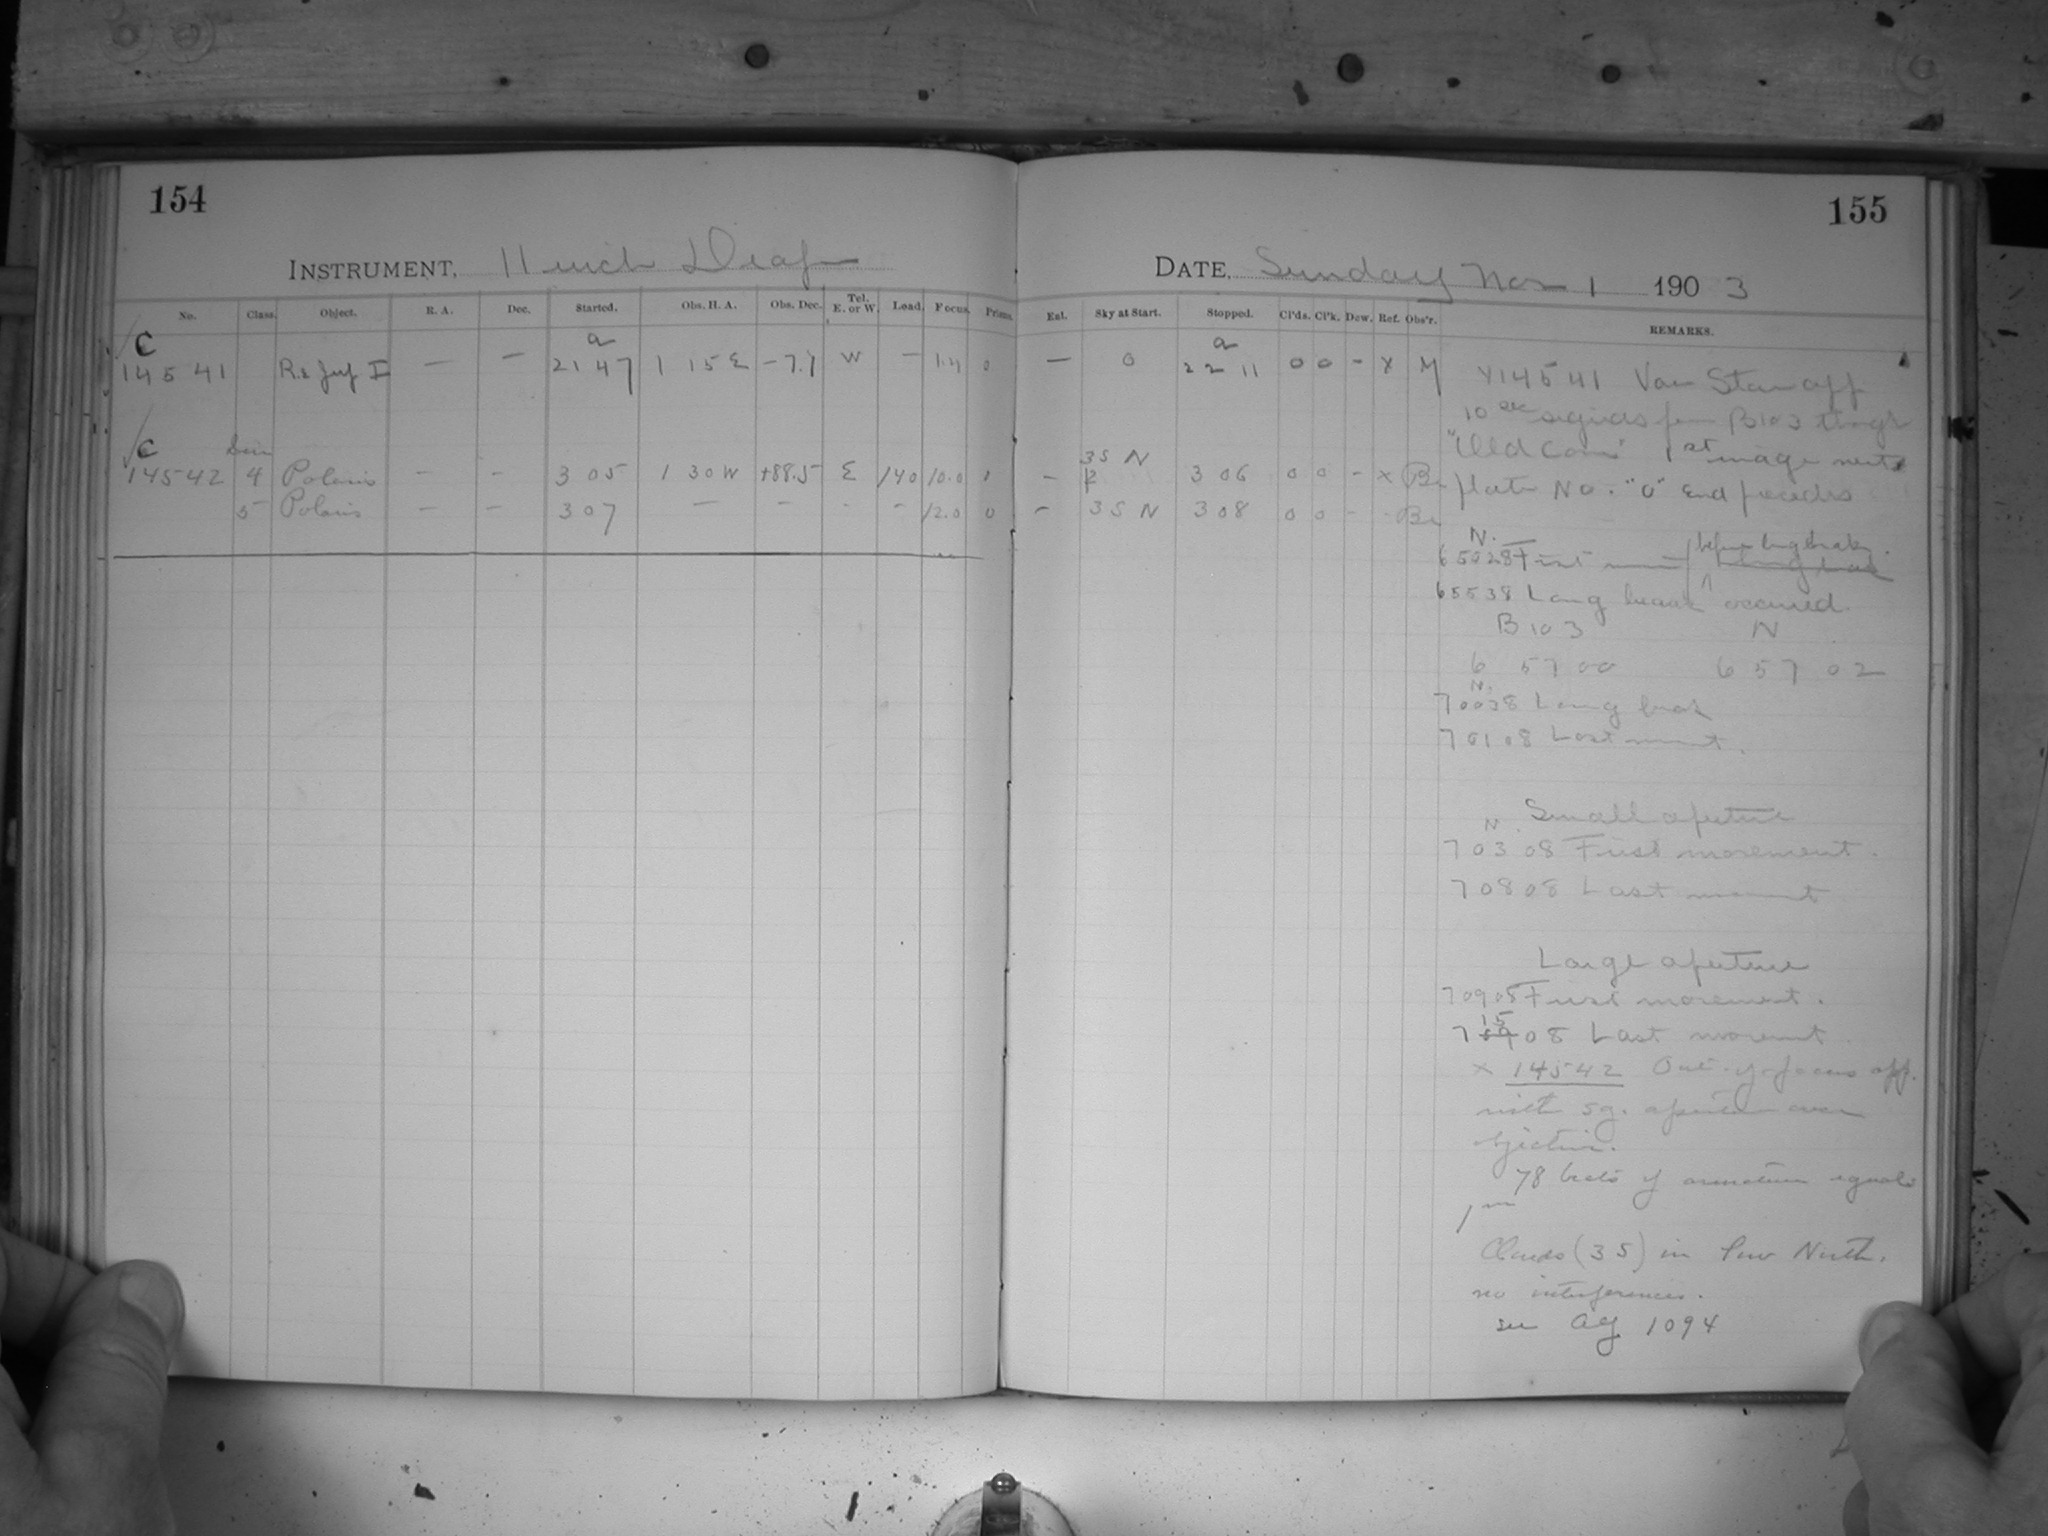 154
INSTRUMENT, 11 inch Draper
No. Class. Object. R. A. Dec. Started. Obs. H. A. Obs. Dec. Tel. E. or W. Load. Focus. Prisms.
C a
14541 — — 21 47 1 15 E W — 0
C
14542 4 Polaris - - 3 05 1 30 W +88.5 E 140 10.0
5 Polaris - - 3 07 — - - - 12.0 0
155
DATE, Sunday Nov 1 1903
Exl. Sky at Start. Stopped. Cl'ds. Cl'k. Dew. Ref. Obs'r. REMARKS.
a
— 0 22 11 0 0 - x M
3 S N
- 3 06 0 0 - x Be
- 3 S N 3 08 0 0 - - Be
x14541 Var Star app
10 sec signals from B103 through
"Old Com" 1st image next
plate No. "0" end precedes
N.
65028 First
65538 Long break occurred.
B103 N
6 57 00 6 57 02
N.
70038 Long break
70108 Last movement.
Small aperture
N.
70308 First movement.
70808 Last movement
Large aperture
70908 First movement.
7 15 08 Last movement
x 14542 Out of focus app.
with sq. aperture over
objective.
78 beats of armature equals
1m
Clouds (3S) in low North.
no interference.
see AG 1094